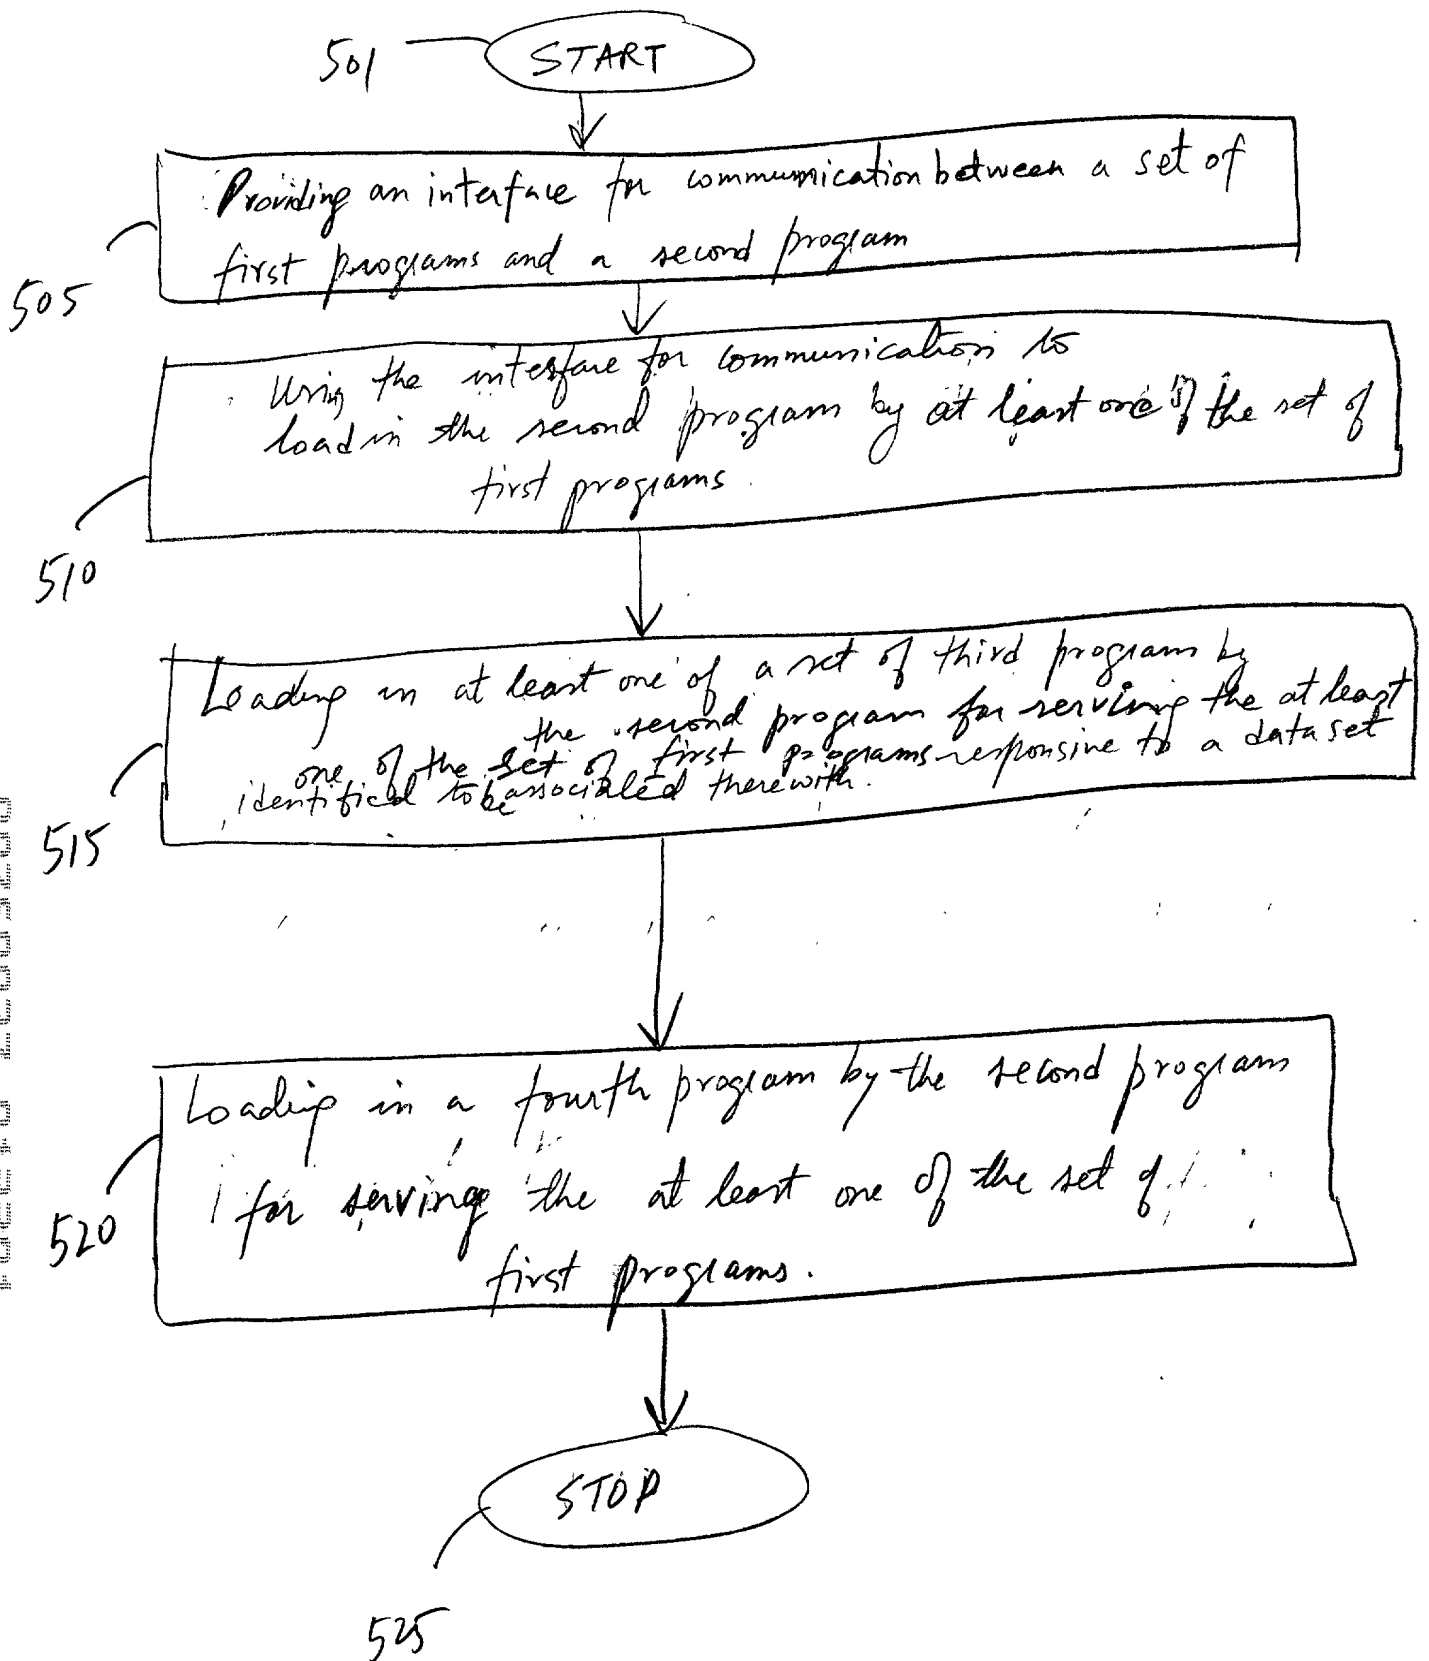 501 START
Providing an interface for communication between a set of
first programs and a second program
505
Using the interface for communication to
load in the second program by at least one of the set of
first programs.
510
Loading in at least one of a set of third program by
the second program for serving the at least
one of the set of first programs responsive to a data set
identified to be associated therewith.
515
Loading in a fourth program by the second program
for serving the at least one of the set of
first programs.
520
STOP
525